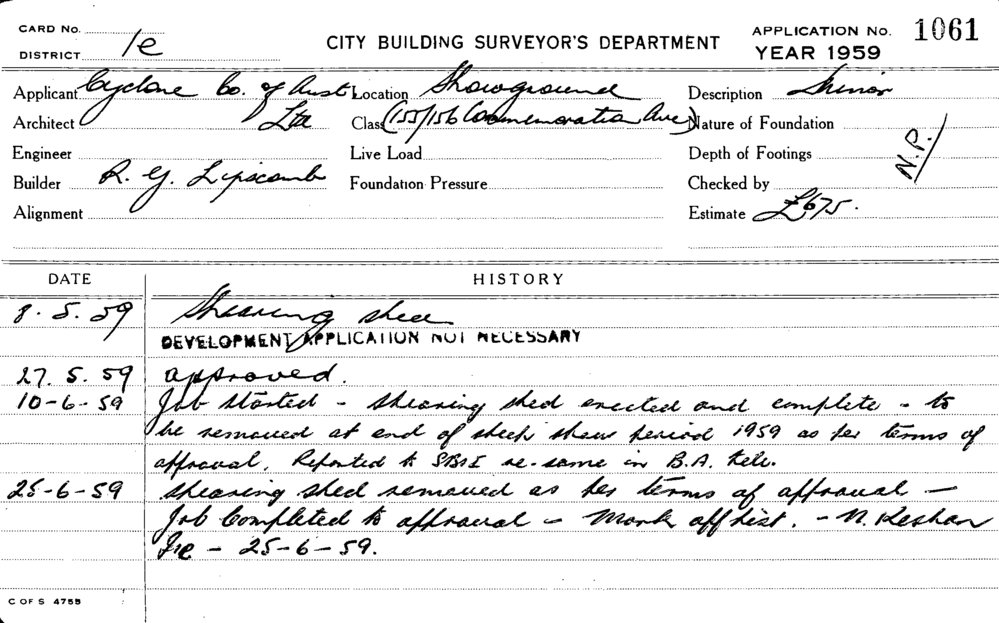 CARD No.
DISTRICT 1e
CITY BUILDING SURVEYOR'S DEPARTMENT
APPLICATION No. 1061
YEAR 1959
Applicant Cyclone Co. of Aust Location Showground Description Minor
Architect Ltd Class (155/156 Commemoration Ave) Nature of Foundation
Engineer Live Load Depth of Footings N.P.
Builder R. G. Lipscomb Foundation Pressure Checked by
Alignment Estimate £675.
DATE HISTORY
8. 5. 59 Shearing shed
DEVELOPMENT APPLICATION NOT NECESSARY
27. 5. 59 approved.
10-6-59 Job started - shearing shed erected and complete - to
be removed at end of sheep show period 1959 as per terms of
approval. Reported to SBSI re-same in B.A.
25-6-59 shearing shed removed as per terms of approval -
Job Completed to approval - Mark off list. - N.
25-6-59.
C OF S 4755